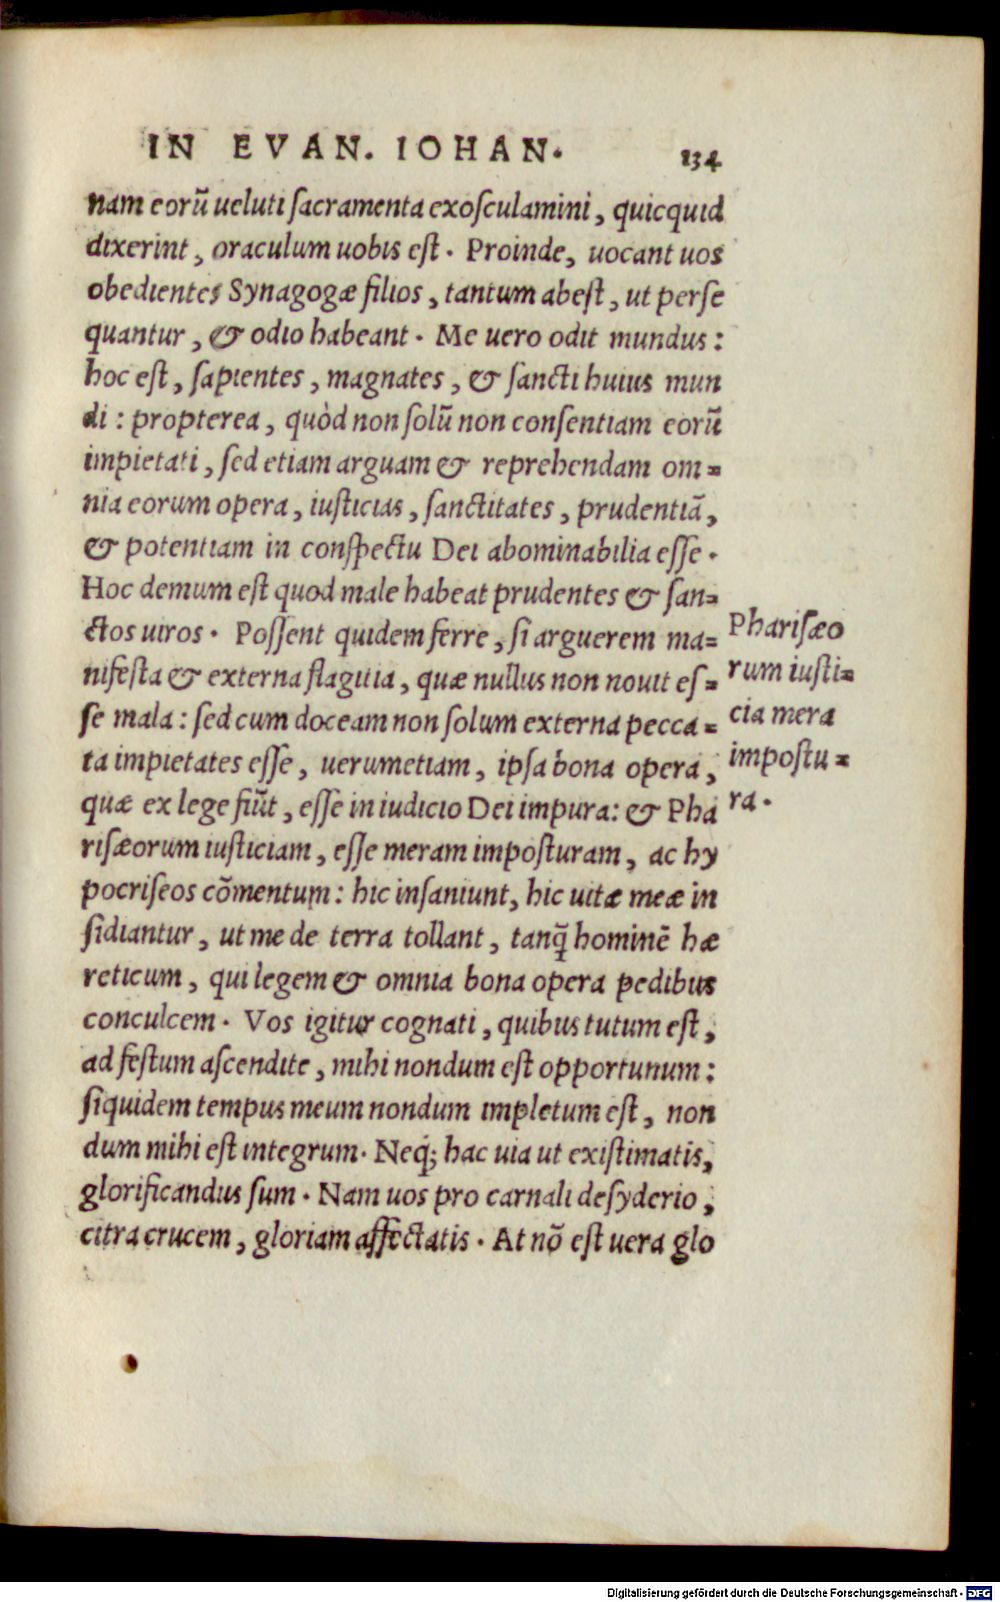 IN EVAN. IOHAN. 134
nam eorũ ueluti sacramenta exosculamini, quicquid
dixerint, oraculum uobis est. Proinde, uocant uos
obedientes Synagogæ filios, tantum abest, ut perse
quantur, & odio habeant. Me uero odit mundus:
hoc est, sapientes, magnates, & sancti huius mun
di: propterea, quòd non solũ non consentiam eorũ
impietati, sed etiam arguam & reprehendam om=
nia eorum opera, iusticias, sanctitates, prudentiã,
& potentiam in conspectu Dei abominabilia esse.
Hoc demum est quod male habeat prudentes & san=
ctos uiros. Possent quidem ferre, si arguerem ma=
nifesta & externa flagitia, quæ nullus non nouit es=
se mala: sed cum doceam non solum externa pecca=
ta impietates esse, uerumetiam, ipsa bona opera,
quæ ex lege fiũt, esse in iudicio Dei impura: & Pha
risæorum iusticiam, esse meram imposturam, ac hy
pocriseos cõmentum: hic insaniunt, hic uitæ meæ in
sidiantur, ut me de terra tollant, tanq̃ hominẽ hæ
reticum, qui legem & omnia bona opera pedibus
conculcem. Vos igitur cognati, quibus tutum est,
ad festum ascendite, mihi nondum est opportunum:
siquidem tempus meum nondum impletum est, non
dum mihi est integrum. Neq; hac uia ut existimatis,
glorificandus sum. Nam uos pro carnali desyderio,
citra crucem, gloriam affectatis. At nõ est uera glo
Pharisæo
rum iusti=
cia mera
impostu=
ra.
Digitalisierung gefördert durch die Deutsche Forschungsgemeinschaft - DFG